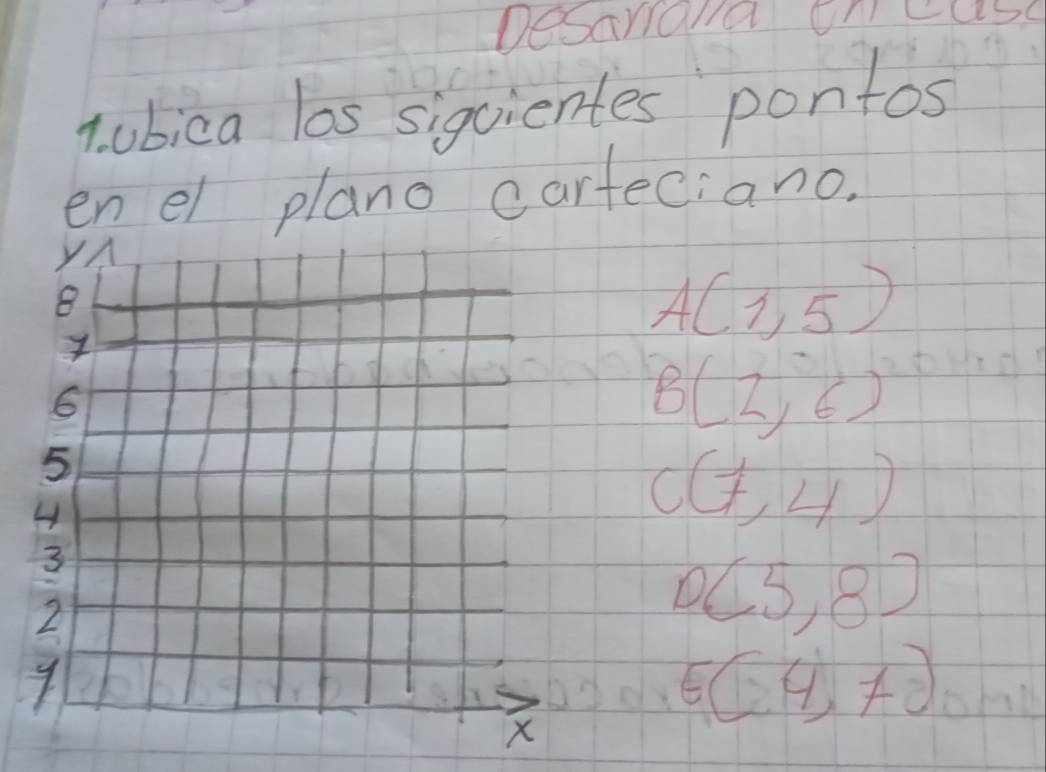 Desarrolla en casa
1. ubica los siguientes pontos
en el plano carteciano.
y
8
7
6
5
4
3
2
1
x
A(1,5)
B(2,6)
C(7,4)
D(5,8)
E(4,7)